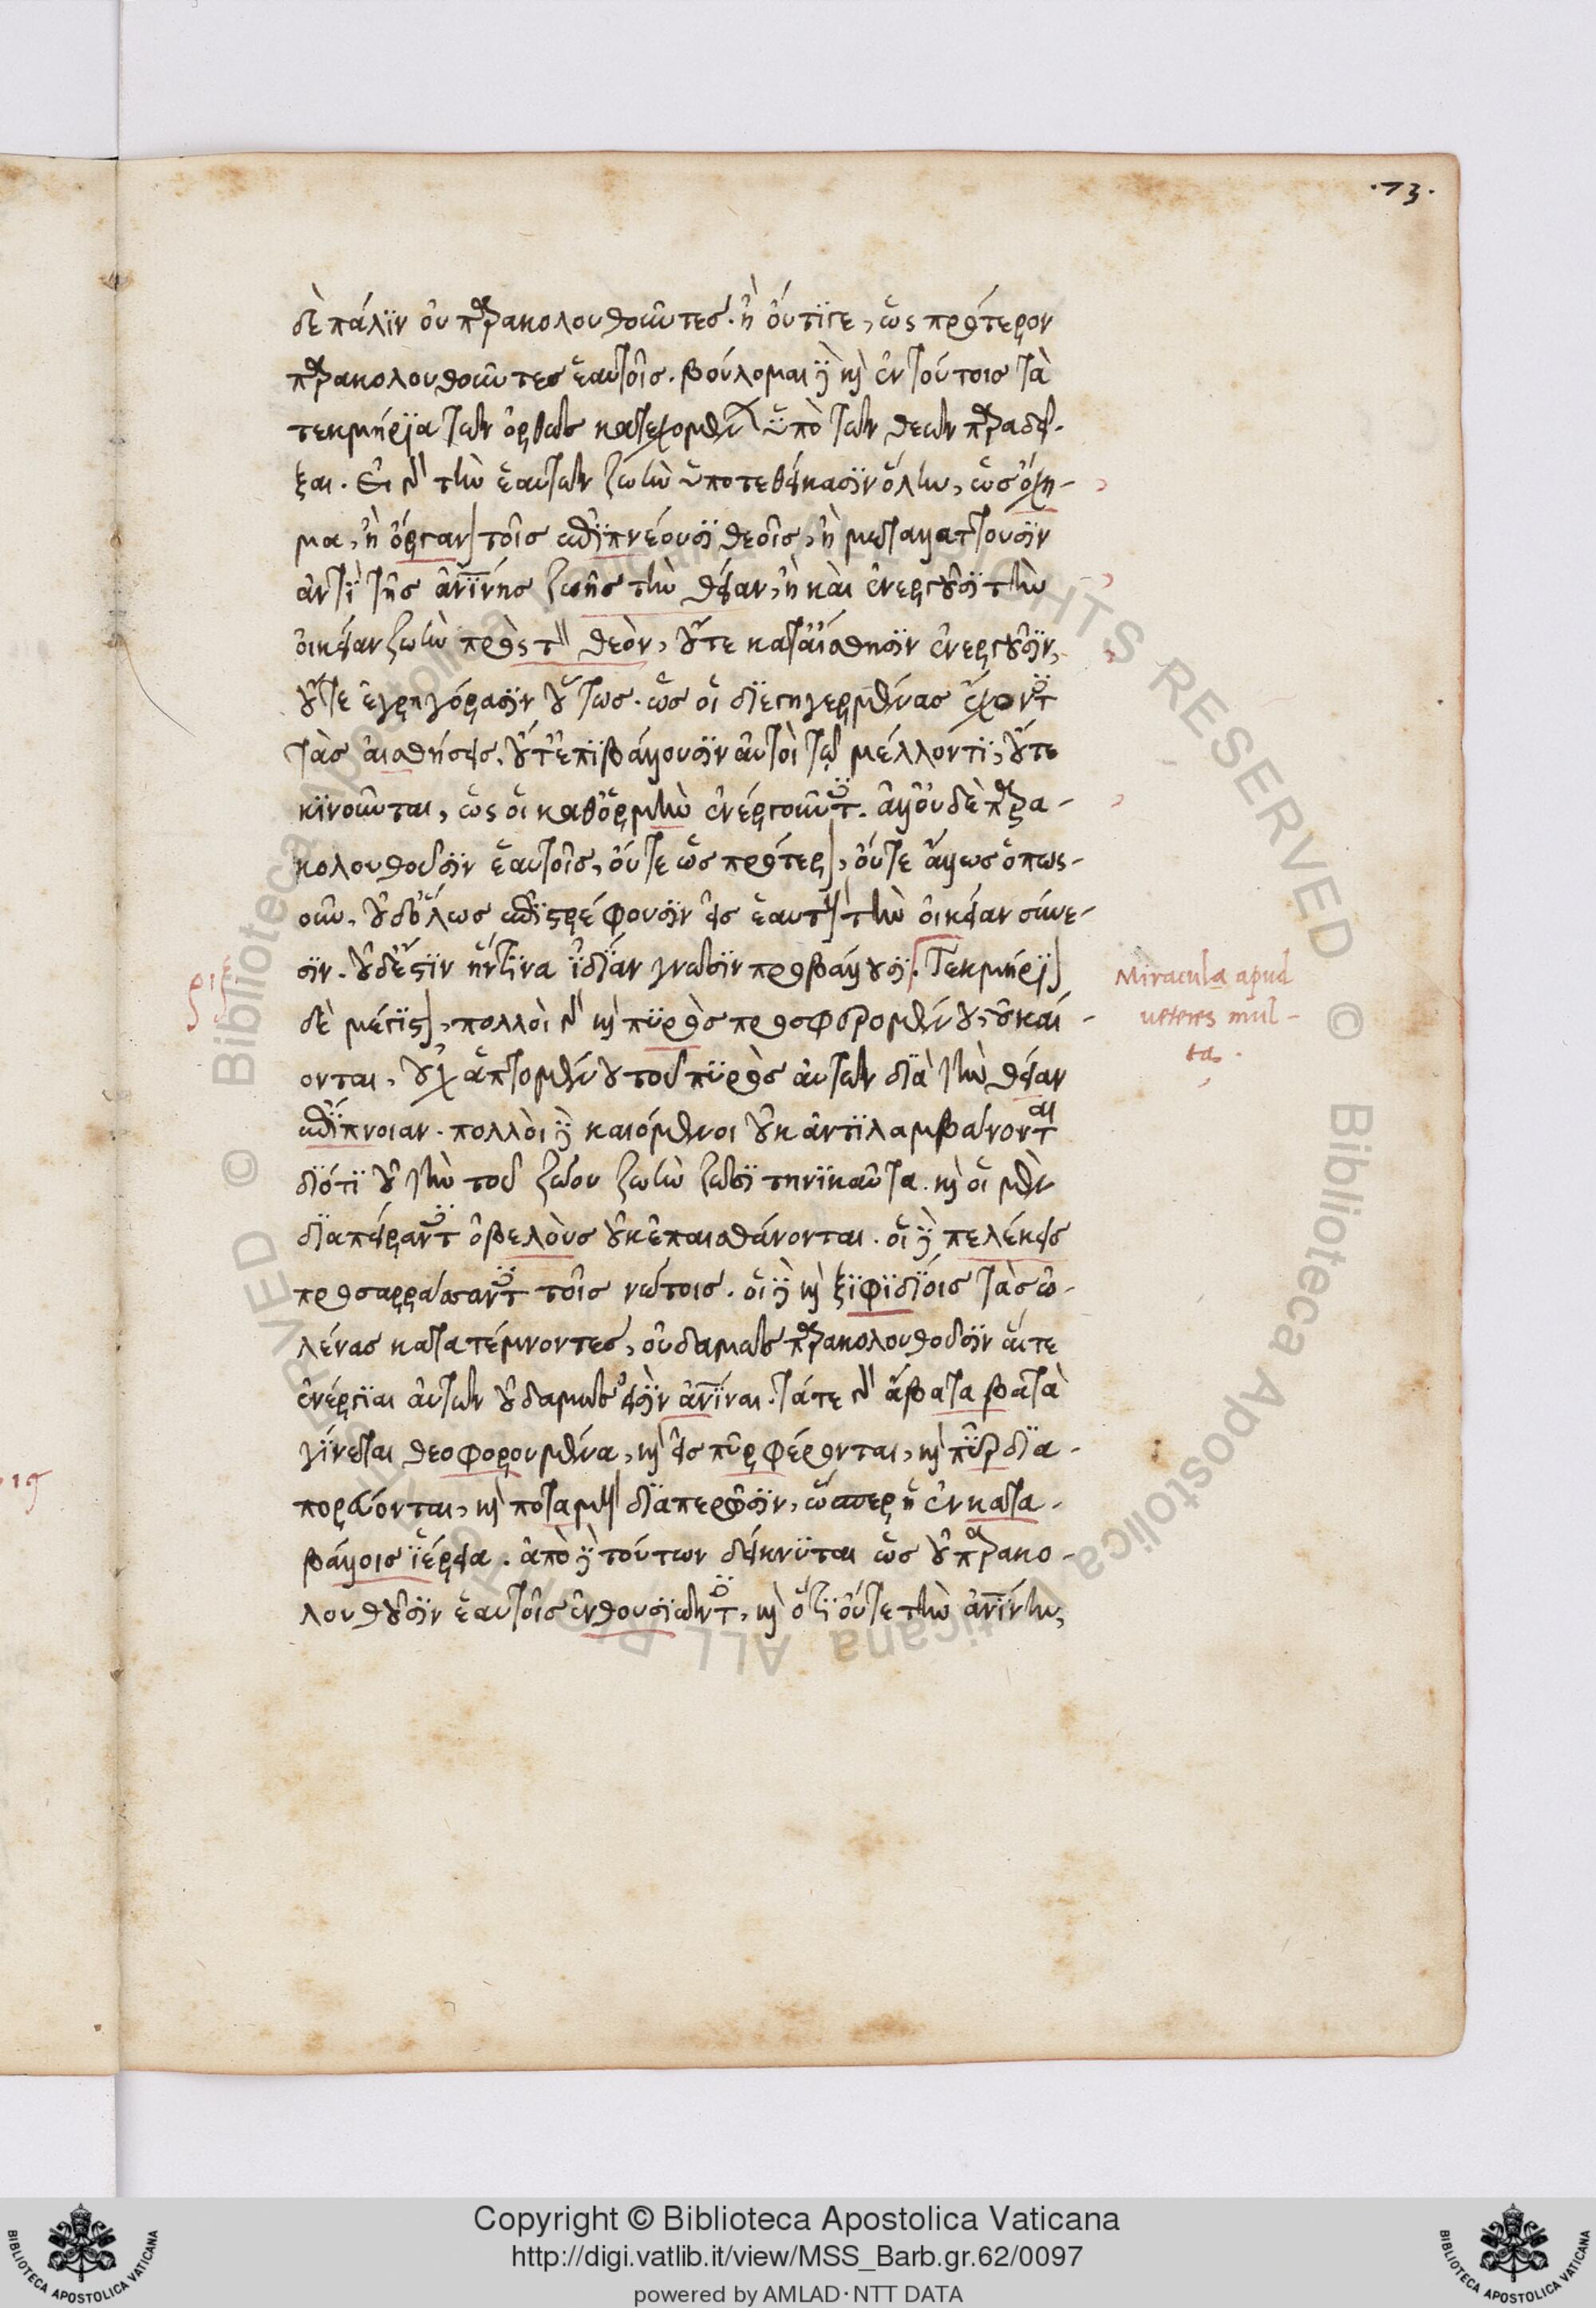 .73.
δὲ πάλιν οὐ παρακολουθοῦντες. ἢ οὔτιγε, ὡς πρότερον
παρακολουθοῦντες ἑαυτοῖς. βούλομαι δὲ καὶ ἐν τούτοις τὰ
τεκμήρια τῶν ὀρθῶς κατεχομένων ὑπὸ τῶν θεῶν παραδεῖ-
ξαι. Εἰ γὰρ τὴν ἑαυτῶν ζωὴν ὑποτεθείκασιν ὅλην, ὡς ὄχη-
μα, ἢ ὄργανον τοῖς ἐπιπνέουσι θεοῖς, ἢ μεταλλάττουσιν
ἀντὶ τῆς ἀνθρωπίνης ζωῆς τὴν θείαν, ἢ καὶ ἐνεργοῦσι τὴν
οἰκείαν ζωὴν πρὸς τὸν θεὸν, οὔτε κατ' αἴσθησιν ἐνεργοῦσιν,
οὔτε ἐγρηγόρασιν οὕτως. ὡς οἱ διεγηγερμένας ἔχοντες
τὰς αἰσθήσεις. οὔτ' ἐπιβάλλουσιν αὐτοὶ τῷ μέλλοντι, οὔτε
κινοῦνται, ὡς οἱ καθ' ὁρμὴν ἐνεργοῦντες. ἀλλ' οὐδὲ παρα-
κολουθοῦσιν ἑαυτοῖς, οὔτε ὡς πρότερον, οὔτε ἄλλως ὅπως-
οῦν. οὐδ' ὅλως ἐπιστρέφουσιν εἰς ἑαυτοὺς τὴν οἰκείαν σύνε-
σιν. οὐδ' ἔστιν ἥντινα ἰδίαν γνῶσιν προβάλλουσι. Τεκμήριον
δὲ μέγιστον, πολλοὶ γὰρ καὶ πυρὸς προσφερομένου, οὐ καί-
ονται, οὐχ ἁπτομένου τοῦ πυρὸς αὐτῶν διὰ τὴν θείαν
ἐπίπνοιαν. πολλοὶ δὲ καιόμενοι οὐκ ἀντιλαμβάνονται
διότι οὐ τὴν τοῦ ζώου ζωὴν ζῶσι τηνικαῦτα. καὶ οἱ μὲν
διαπείραντες ὀβελοὺς οὐκ ἐπαισθάνονται. οἱ δὲ πελέκεις
προσαρράσσαντες τοῖς νώτοις. οἱ δὲ καὶ ξιφιδίοις τὰς ὠ-
λένας κατατέμνοντες, οὐδαμῶς παρακολουθοῦσιν αἵ τε
ἐνέργιαι αὐτῶν οὐδαμῶς εἰσὶν ἀνθρώπιναι. τά τε γὰρ ἄβατα βατὰ
γίνεται θεοφορουμένα, καὶ εἰς πῦρ φέρονται, καὶ πῦρ δια-
πορεύονται, καὶ ποταμοὺς διαπερῶσιν, ὥσπερ ἡ ἐν κατα-
βάλλοις ἱέρεια. ἀπὸ δὲ τούτων δείκνυται ὡς οὐ παρακο-
λουθοῦσιν ἑαυτοῖς ἐνθουσιῶντες, καὶ ὅτι οὔτε τὴν ἀνθρωπίνην,
Miracula apud
veteres mul-
ta.
Copyright © Biblioteca Apostolica Vaticana
http://digi.vatlib.it/view/MSS_Barb.gr.62/0097
powered by AMLAD·NTT DATA